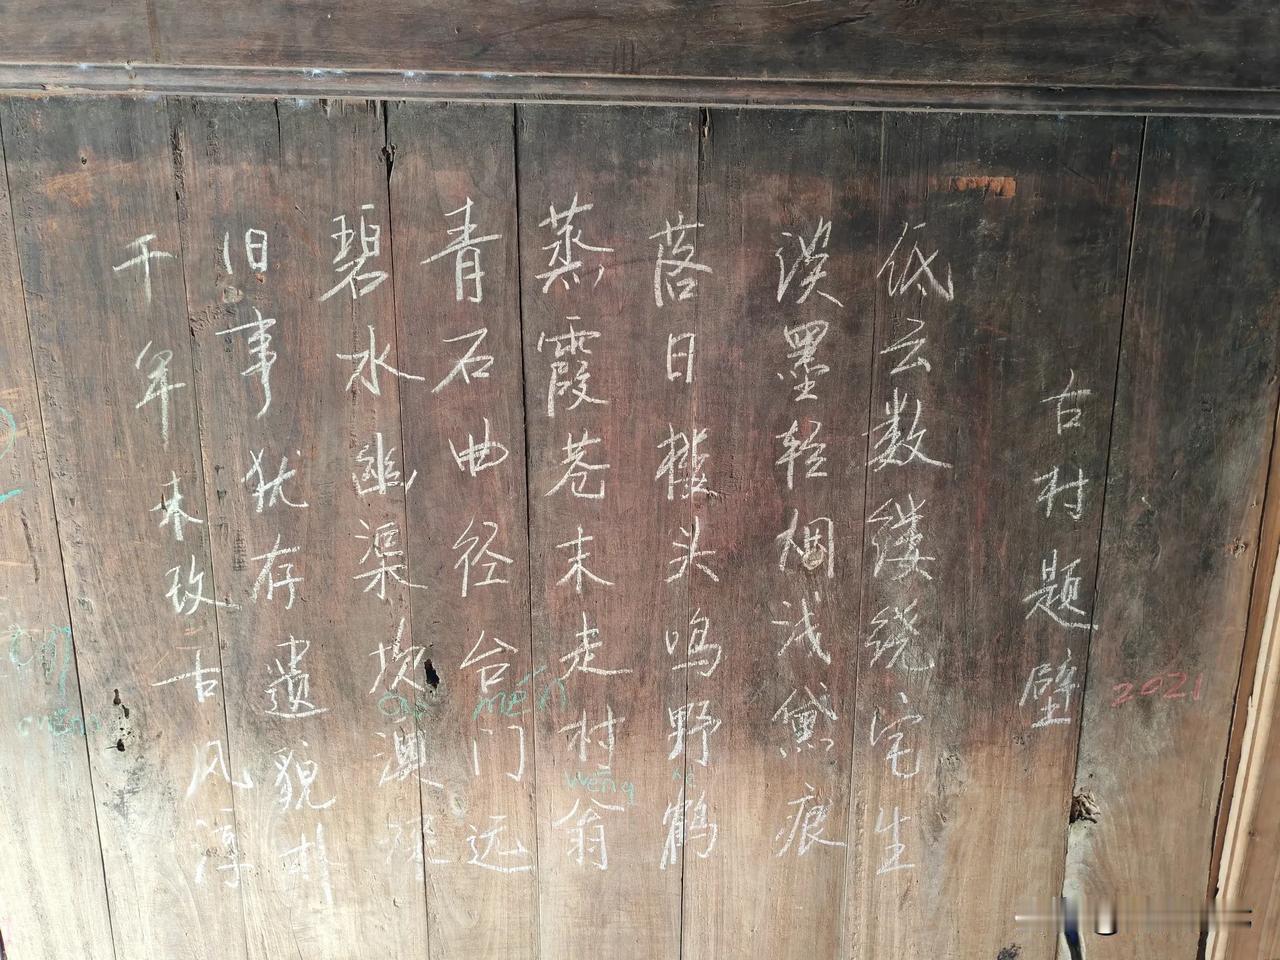 古村题壁
2021
低云数缕绕宅生
淡墨轻烟浅黛痕
落日楼头鸣野鹤
蒸霞巷末走村翁
wēng
青石曲径台门远
mén
碧水幽渠坎澳深
旧事犹存遗貌朴
千年未改古风淳